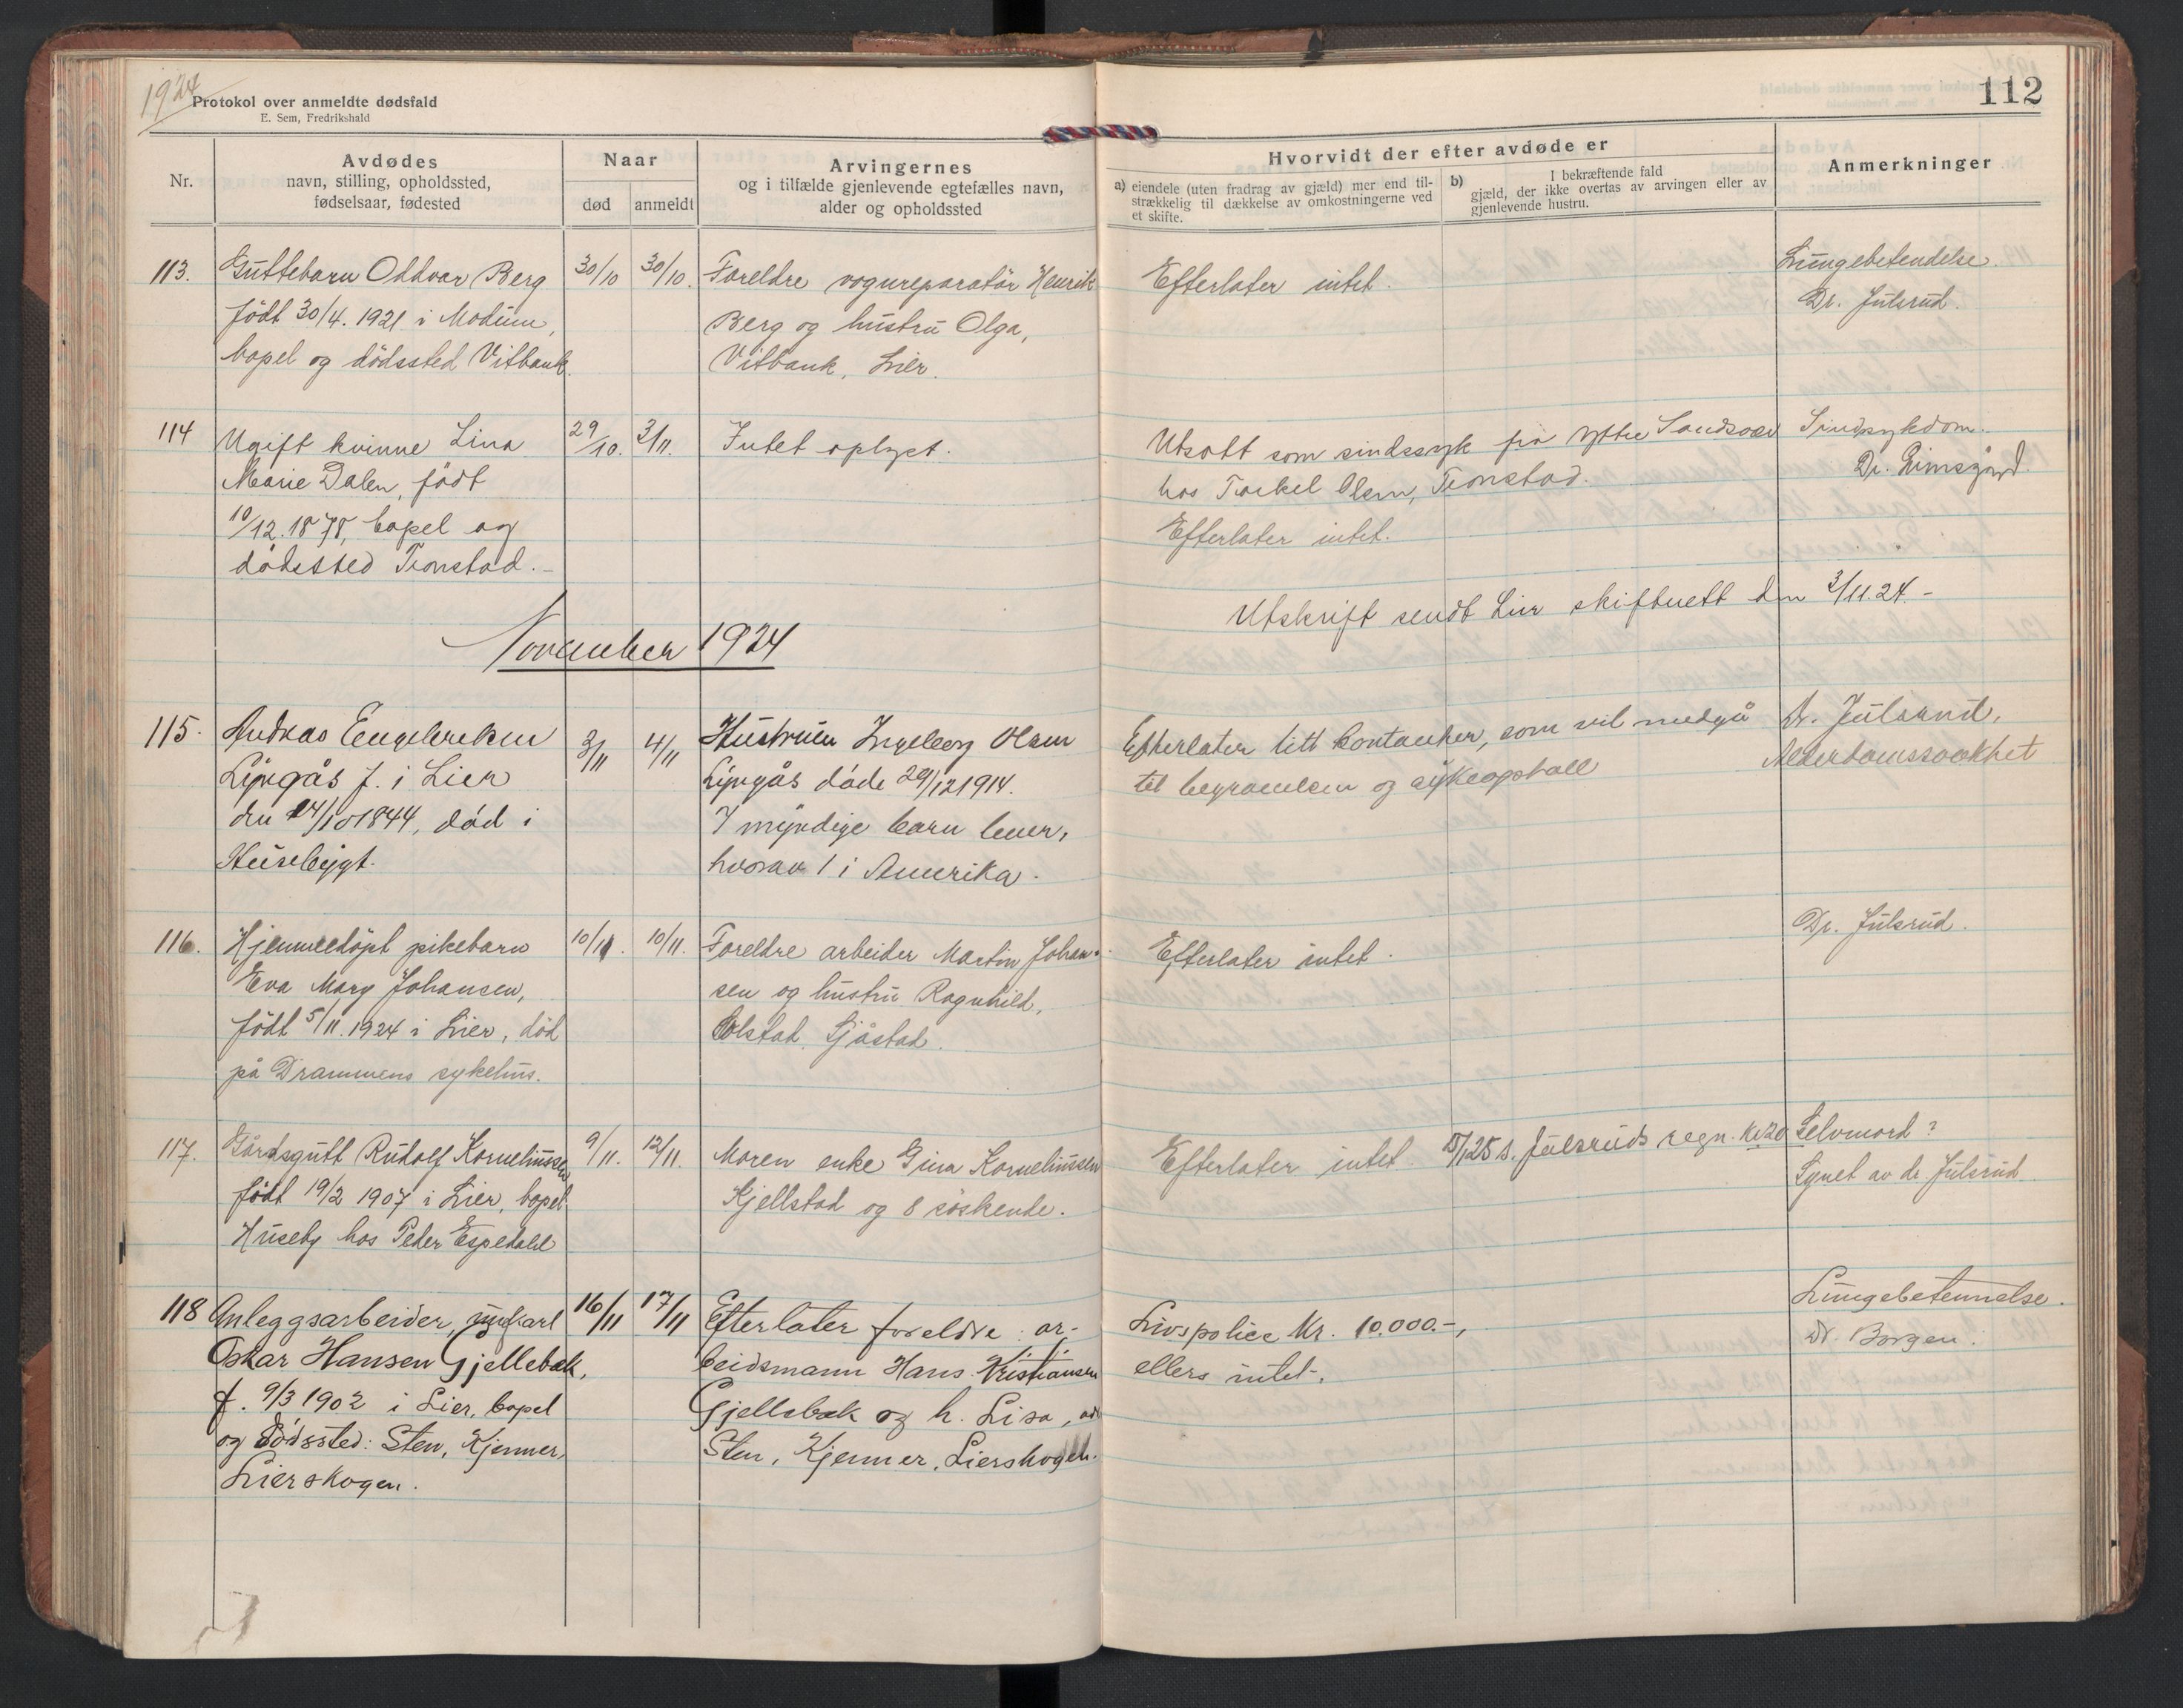 1924
Protokol over anmeldte dødsfald
E. Sem, Fredrikshald
112
Nr.
Avdødes
navn, stilling, opholdssted,
fødselsaar, fødested
Naar
død
anmeldt
Arvingernes
og i tilfælde gjenlevende egtefælles navn,
alder og opholdssted
Hvorvidt der efter avdøde er
a) eiendele (uten fradrag av gjæld) mer end til-
strækkelig til dækkelse av omkostningerne ved
et skifte.
b) I bekræftende fald
gjæld, der ikke overtas av arvingen eller av
gjenlevende hustru.
Anmerkninger
113.
Guttebarn Oddvar Berg
født 30/4. 1921 i Modum,
bopel og dödssted Vitbank.
30/10
30/10.
Foreldre vognreparatör Henrik
Berg og hustru Olga,
Vitbank, Lier.
Efterlater intet.
Lungebetendelse.
Dr. Julsrud.
114
Ugift kvinne Lina
Marie Dalen, født
10/12. 1878, bopel og
dödssted Tronstad.-
29/10.
3/11.
Intet oplyst.
Utsatt som sindssyk fra Yttre Sandsvær
hos Torkel Olsen, Tronstad.
Efterlater intet.
Sindsykdom.
Dr.
Utskrift sendt Lier skifterett den 3/11.24.-
November 1924
115.
Andreas Engebretsen
Lyngås f. i Lier
den 24/10 1844, död i
Husebygt.
3/11
4/11
Hustruen Ingeborg Olsen
Lyngås döde 29/12 1914.
7 myndige barn lever,
hvorav 1 i Amerika.
Efterlater litt kontanter, som vil medgå
til begravelsen og sykeophold
Dr. Julsrud.
Alderdomssvakhet
116.
Hjemmedöpt pikebarn
Eva Mary Johansen,
født 5/11. 1924 i Lier, död
på Drammens sykehus.
10/11.
10/11.
Foreldre arbeider Martin Johan-
sen og hustru Ragnhild,
Olstad, Sjåstad.
Efterlater intet.
Dr. Julsrud.
117.
Gårdsgutt Rudolf Kornelinssen
født 19/2 1907 i Lier, bopel
Huseby hos Peder Espedald
9/11.
12/11.
Moren enke Gina Kornelinssen
Kjellstad og 8 söskende.
Efterlater intet.
/1 25 s. Julsruds regn. kr 20
Selvmord?
Synet av dr. Julsrud.
118
Anleggsarbeider, ungkarl
Oskar Hansen Gjellebæk,
f. 9/3 1902 i Lier, bopel
og dödssted: Sten, Kjenner,
Lierskogen.
16/11
17/11
Efterlater foreldre: ar-
beidsmann Hans Kristiansen
Gjellebæk og h. Lisa, adr
Sten, Kjenner, Lierskogen.
Livspolice Kr. 10.000.-,
ellers intet.
Lungebetennelse.
Dr. Borgen.